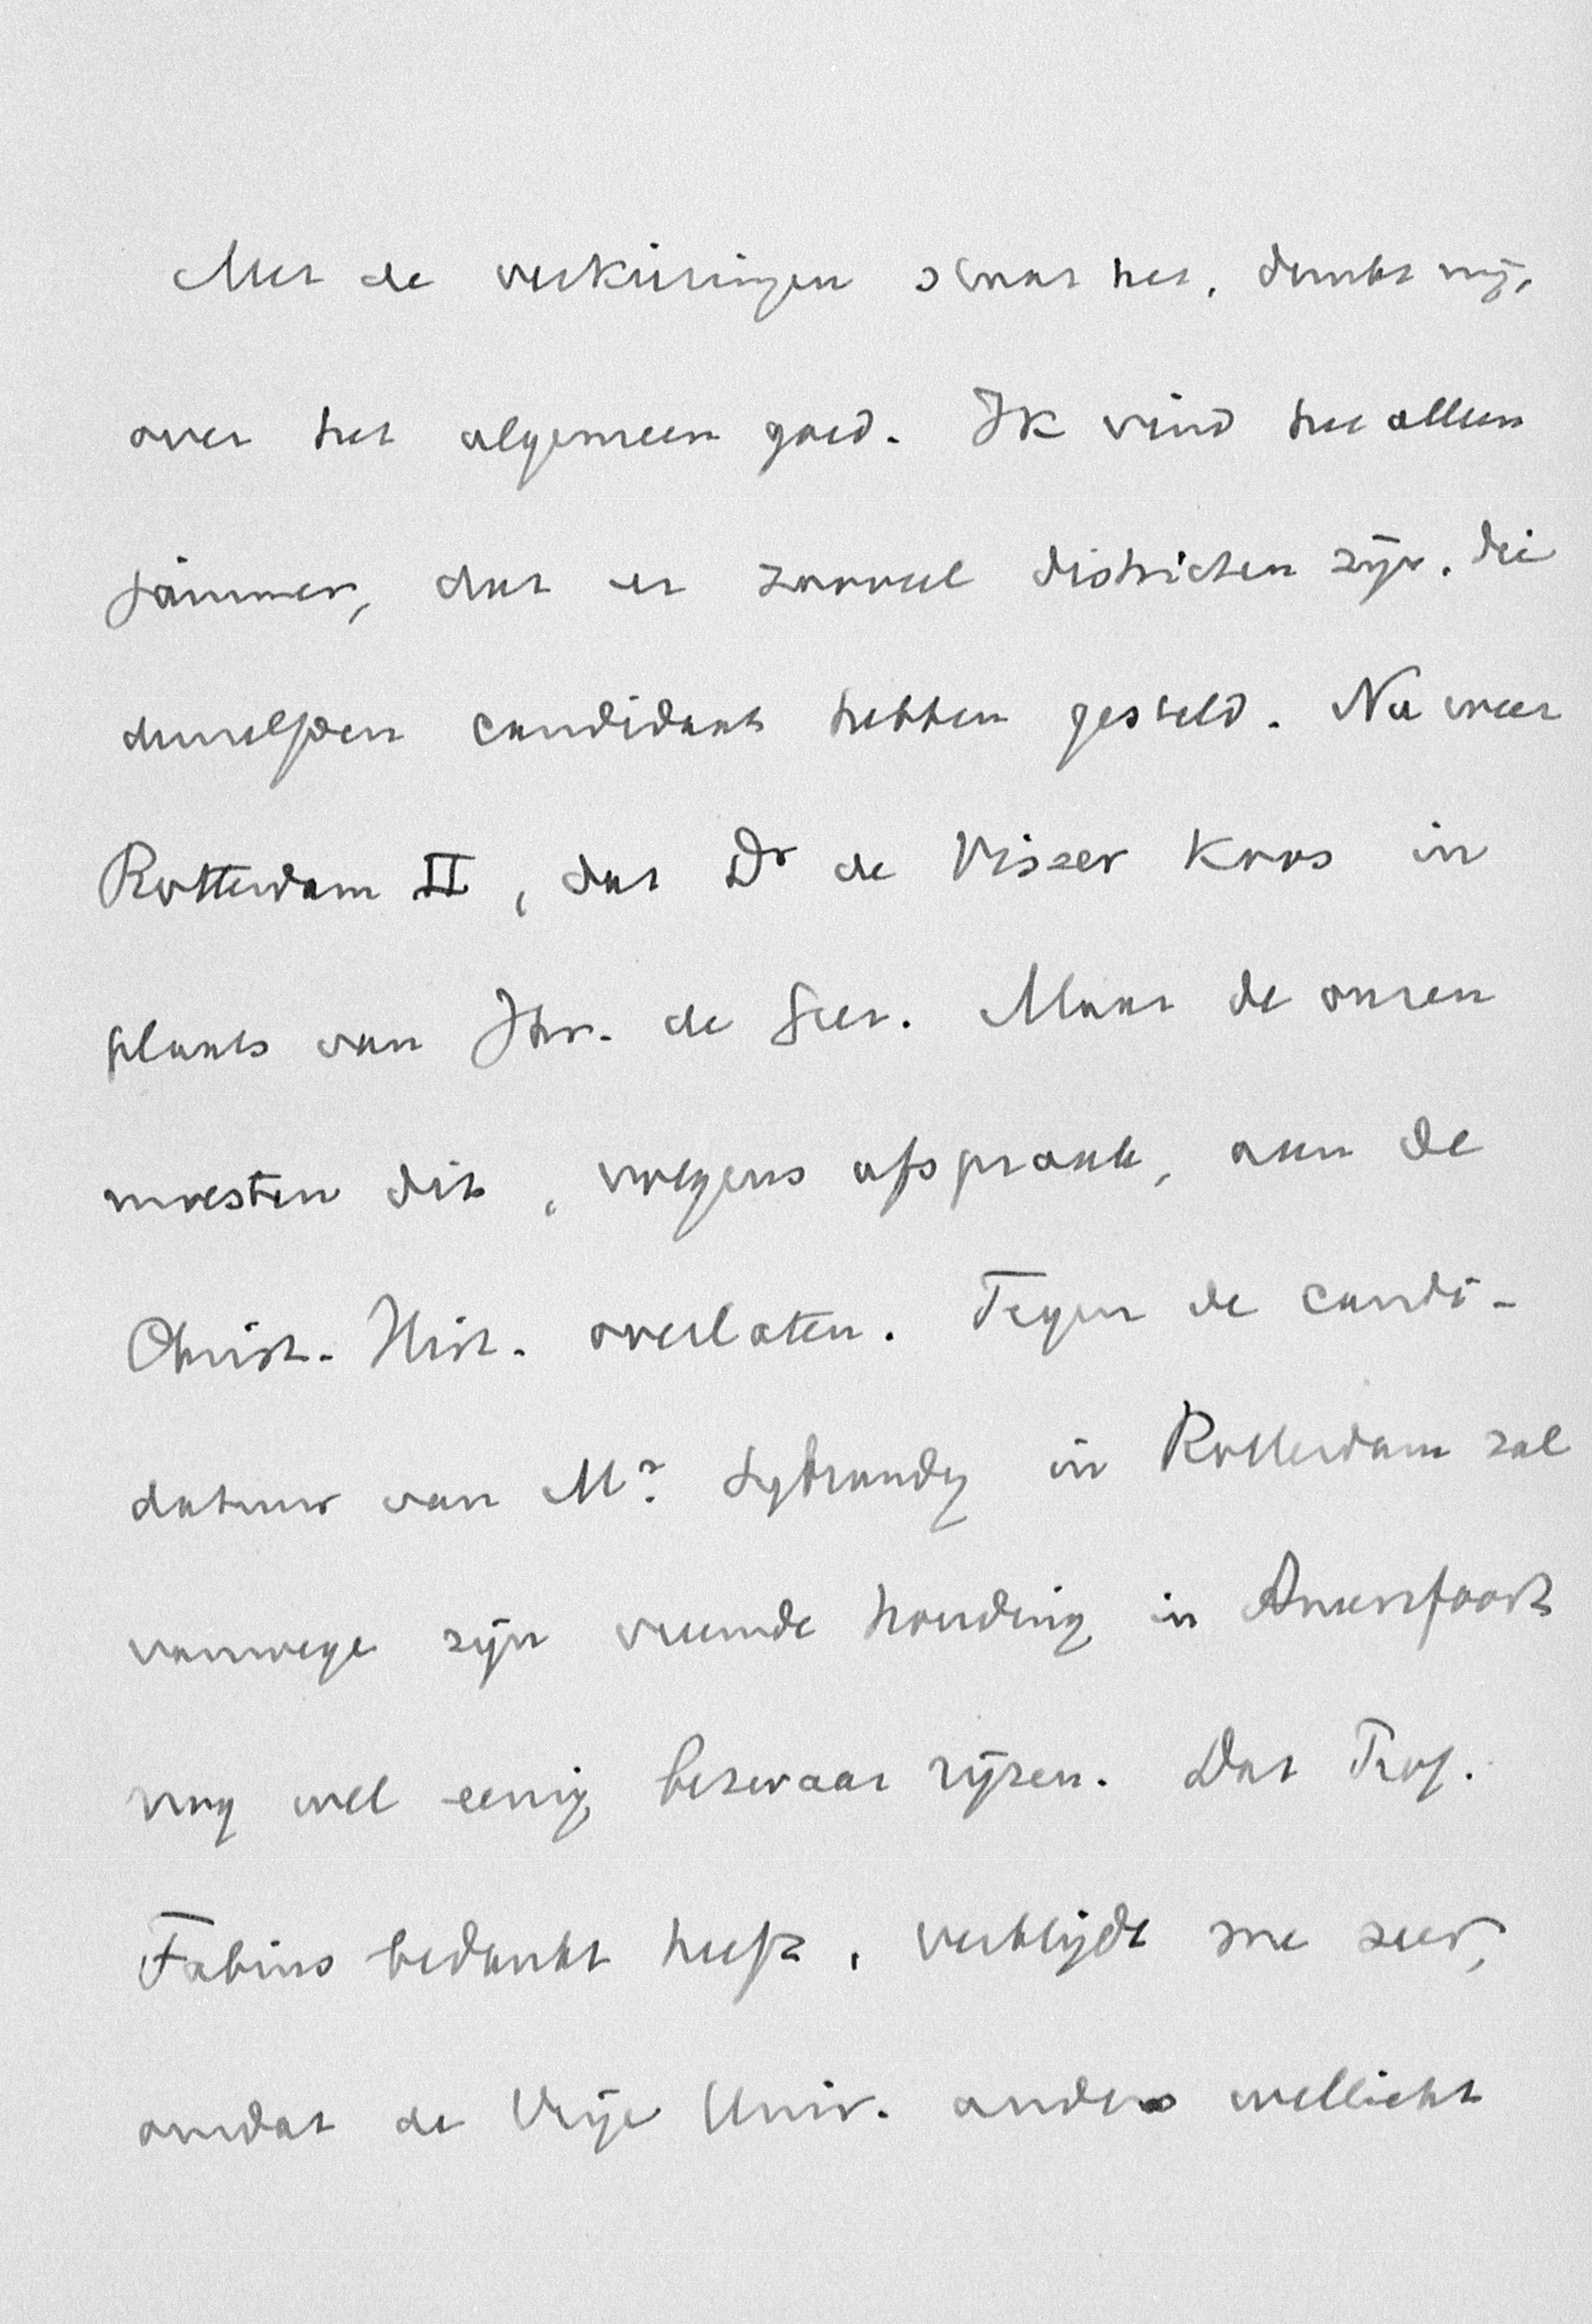 Met de verkiezingen staat het, dunkt mij,
over het algemeen goed. Ik vind het alleen
jammer, dat er zooveel districten zijn, die
denzelfden candidaat hebben gesteld. Nu weer
Rotterdam II, dat Dr de Visser koos in
plaats van Jhr. de Geer. Maar de onzen
moesten dit, volgens afspraak, aan de
Christ. Hist. overlaten. Tegen de candi-
datuur van Mr. Sybrandy in Rotterdam zal
vanwege zijn vreemde houding in Amersfoort
nog wel eenig bezwaar rijzen. Dat Prof.
Fabius bedankt heeft, verblijdt me zeer,
omdat de Vrije Univ. anders wellicht